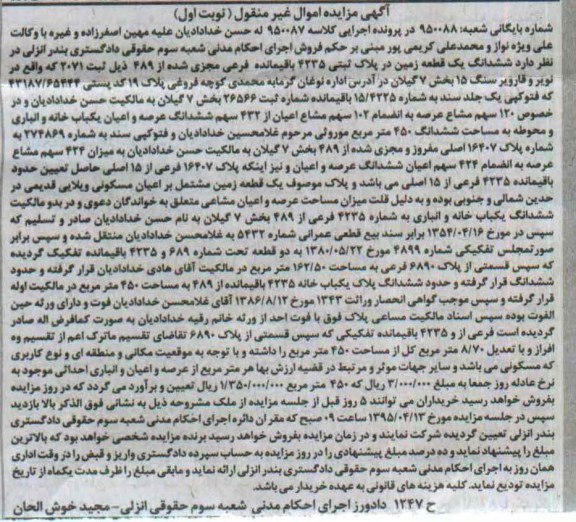 آگهی مزایده اموال غیر منقول (نوبت اول)
شماره بایگانی شعبه: ۹۵۰۰۸۸ در پرونده اجرایی کلاسه ۹۵۰۰۸۷ له حسن خدادادیان علیه مهین اصغرزاده و غیره با وکالت
علی ویژه نواز و محمدعلی کریمی پور مبنی بر حکم فروش اجرای احکام مدنی شعبه سوم حقوقی دادگستری بندر انزلی در
نظر دارد ششدانگ یک قطعه زمین در پلاک ثبتی ۴۲۳۵ باقیمانده فرعی مجزی شده از ۴۸۹ ذیل ثبت ۲۰۷۱ که واقع در
نویر و قاریور سنگ ۱۵ بخش ۷ گیلان در آدرس اداره نوغان گرمابه محمدی کوچه فروغی پلاک ۱۹ کد پستی ۴۳۱۸۷/۶۵۴۴۴
که فتوکپی یک جلد سند به شماره ۱۵/۴۲۲۵ باقیمانده شماره ثبت ۲۶۵۶۶ بخش ۷ گیلان به مالکیت حسن خدادادیان و در
خصوص ۱۲۰ سهم مشاع عرصه به انضمام ۱۰۲ سهم مشاع اعیان از ۴۳۲ سهم ششدانگ عرصه و اعیان یکباب خانه و انباری
و محوطه به مساحت ششدانگ ۴۵۰ متر مربع موروثی مرحوم غلامحسین خدادادیان و فتوکپی سند به شماره ۲۷۴۸۶۹ به
شماره پلاک ۱۶۴۰۷ اصلی مفروز و مجزی شده از ۴۸۹ بخش ۷ گیلان به مالکیت حسن خدادادیان به میزان ۴۲۴ سهم مشاع
عرصه به انضمام ۴۲۴ سهم اعیان ششدانگ عرصه و اعیان و نیز اینکه پلاک ۱۶۴۰۷ فرعی از ۱۵ اصلی حاصل تعیین حدود
باقیمانده ۴۲۳۵ فرعی از ۱۵ اصلی می باشد و پلاک موصوف یک قطعه زمین مشتمل بر اعیان مسکونی ویلایی قدیمی در
حدین شمالی و جنوبی بوده و به دلیل قلت میزان مساحت عرصه و اعیان مشاعی متعلق به خواندگان دعوی و در بدو مالکیت
ششدانگ یکباب خانه و انباری به شماره ۴۲۳۵ فرعی از ۴۸۹ بخش ۷ گیلان به نام حسن خدادادیان صادر و تسلیم که
سپس در مورخ ۱۳۵۴/۰۴/۱۶ برابر سند بیع قطعی عمرانی شماره ۵۴۳۲ به غلامحسن خدادادیان منتقل شده و سپس برابر
صورتمجلس تفکیکی شماره ۴۸۹۹ مورخ ۱۳۸۰/۰۵/۲۲ به دو قطعه تحت شماره ۶۸۹ و ۴۲۳۵ باقیمانده تفکیک گردیده
که سپس قسمتی از پلاک ۶۸۹۰ فرعی به مساحت ۱۶۲/۵۰ متر مربع در مالکیت آقای هادی خدادادیان قرار گرفته و حدود
ششدانگ قرار گرفته و حدود ششدانگ پلاک یکباب خانه ۴۲۳۵ باقیمانده از ۴۸۹ به مساحت ۴۵۰ متر مربع در مالکیت اوله
قرار گرفته و سپس موجب گواهی انحصار وراثت ۱۳۴۳ مورخ ۱۳۸۶/۸/۱۲ آقای غلامحسن خدادادیان فوت و دارای ورثه حین
الفوت بوده سپس اسناد مالکیت مساعی پلاک فوق با فوت احد از ورثه خانم رقیه خدادادیان به صورت کمافرض اله صادر
گردیده است فرعی از و ۴۲۳۵ باقیمانده تفکیکی که سپس قسمتی از پلاک ۶۸۹۰ تقاضای تقسیم ماترک اعم از تقسیم وه
افراز و با تعدیل ۸/۷۰ متر مربع کل از مساحت ۴۵۰ متر مربع را داشته و با توجه به موقعیت مکانی و منطقه ای و نوع کاربری
که مسکونی می باشد و سایر جهات موثر و مرتبط در قضیه ارزش بها هر متر مربع از عرصه و اعیان و انباری احداثی موجود به
نرخ عادله روز جمعا به مبلغ ۳/۰۰۰/۰۰۰ ریال که ۴۵۰ متر مربع ۱/۳۵۰/۰۰۰/۰۰۰ ریال تعیین و برآورد می گردد که در روز مزایده
بفروش خواهد رسید خریداران می توانند ۵ روز قبل از جلسه مزایده از ملک مشروحه ذیل به نشانی فوق الذکر بالا بازدید
سپس در جلسه مزایده مورخ ۱۳۹۵/۰۴/۱۳ ساعت ۰۹ صبح که مقر ان دائره اجرای احکام مدنی شعبه سوم حقوقی دادگستری
بندر انزلی تعیین گردیده شرکت نمایند و در زمان مزایده بفروش خواهد رسید برنده مزایده شخصی خواهد بود که بالاترین
مبلغ را پیشنهاد نماید و ده درصد مبلغ پیشنهادی را در روز مزایده به حساب سپرده دادگستری واریز و قبض را در وقت اداری
همان روز به اجرای احکام مدنی شعبه سوم حقوقی دادگستری بندر انزلی ارائه نماید و مابقی مبلغ را ظرف مدت یکماه از تاریخ
مزایده تودیع نماید. کلیه هزینه های قانونی به عهده خریدار می باشد.
ح ۱۲۴۷ دادورز اجرای احکام مدنی شعبه سوم حقوقی انزلی- مجید خوش الحان